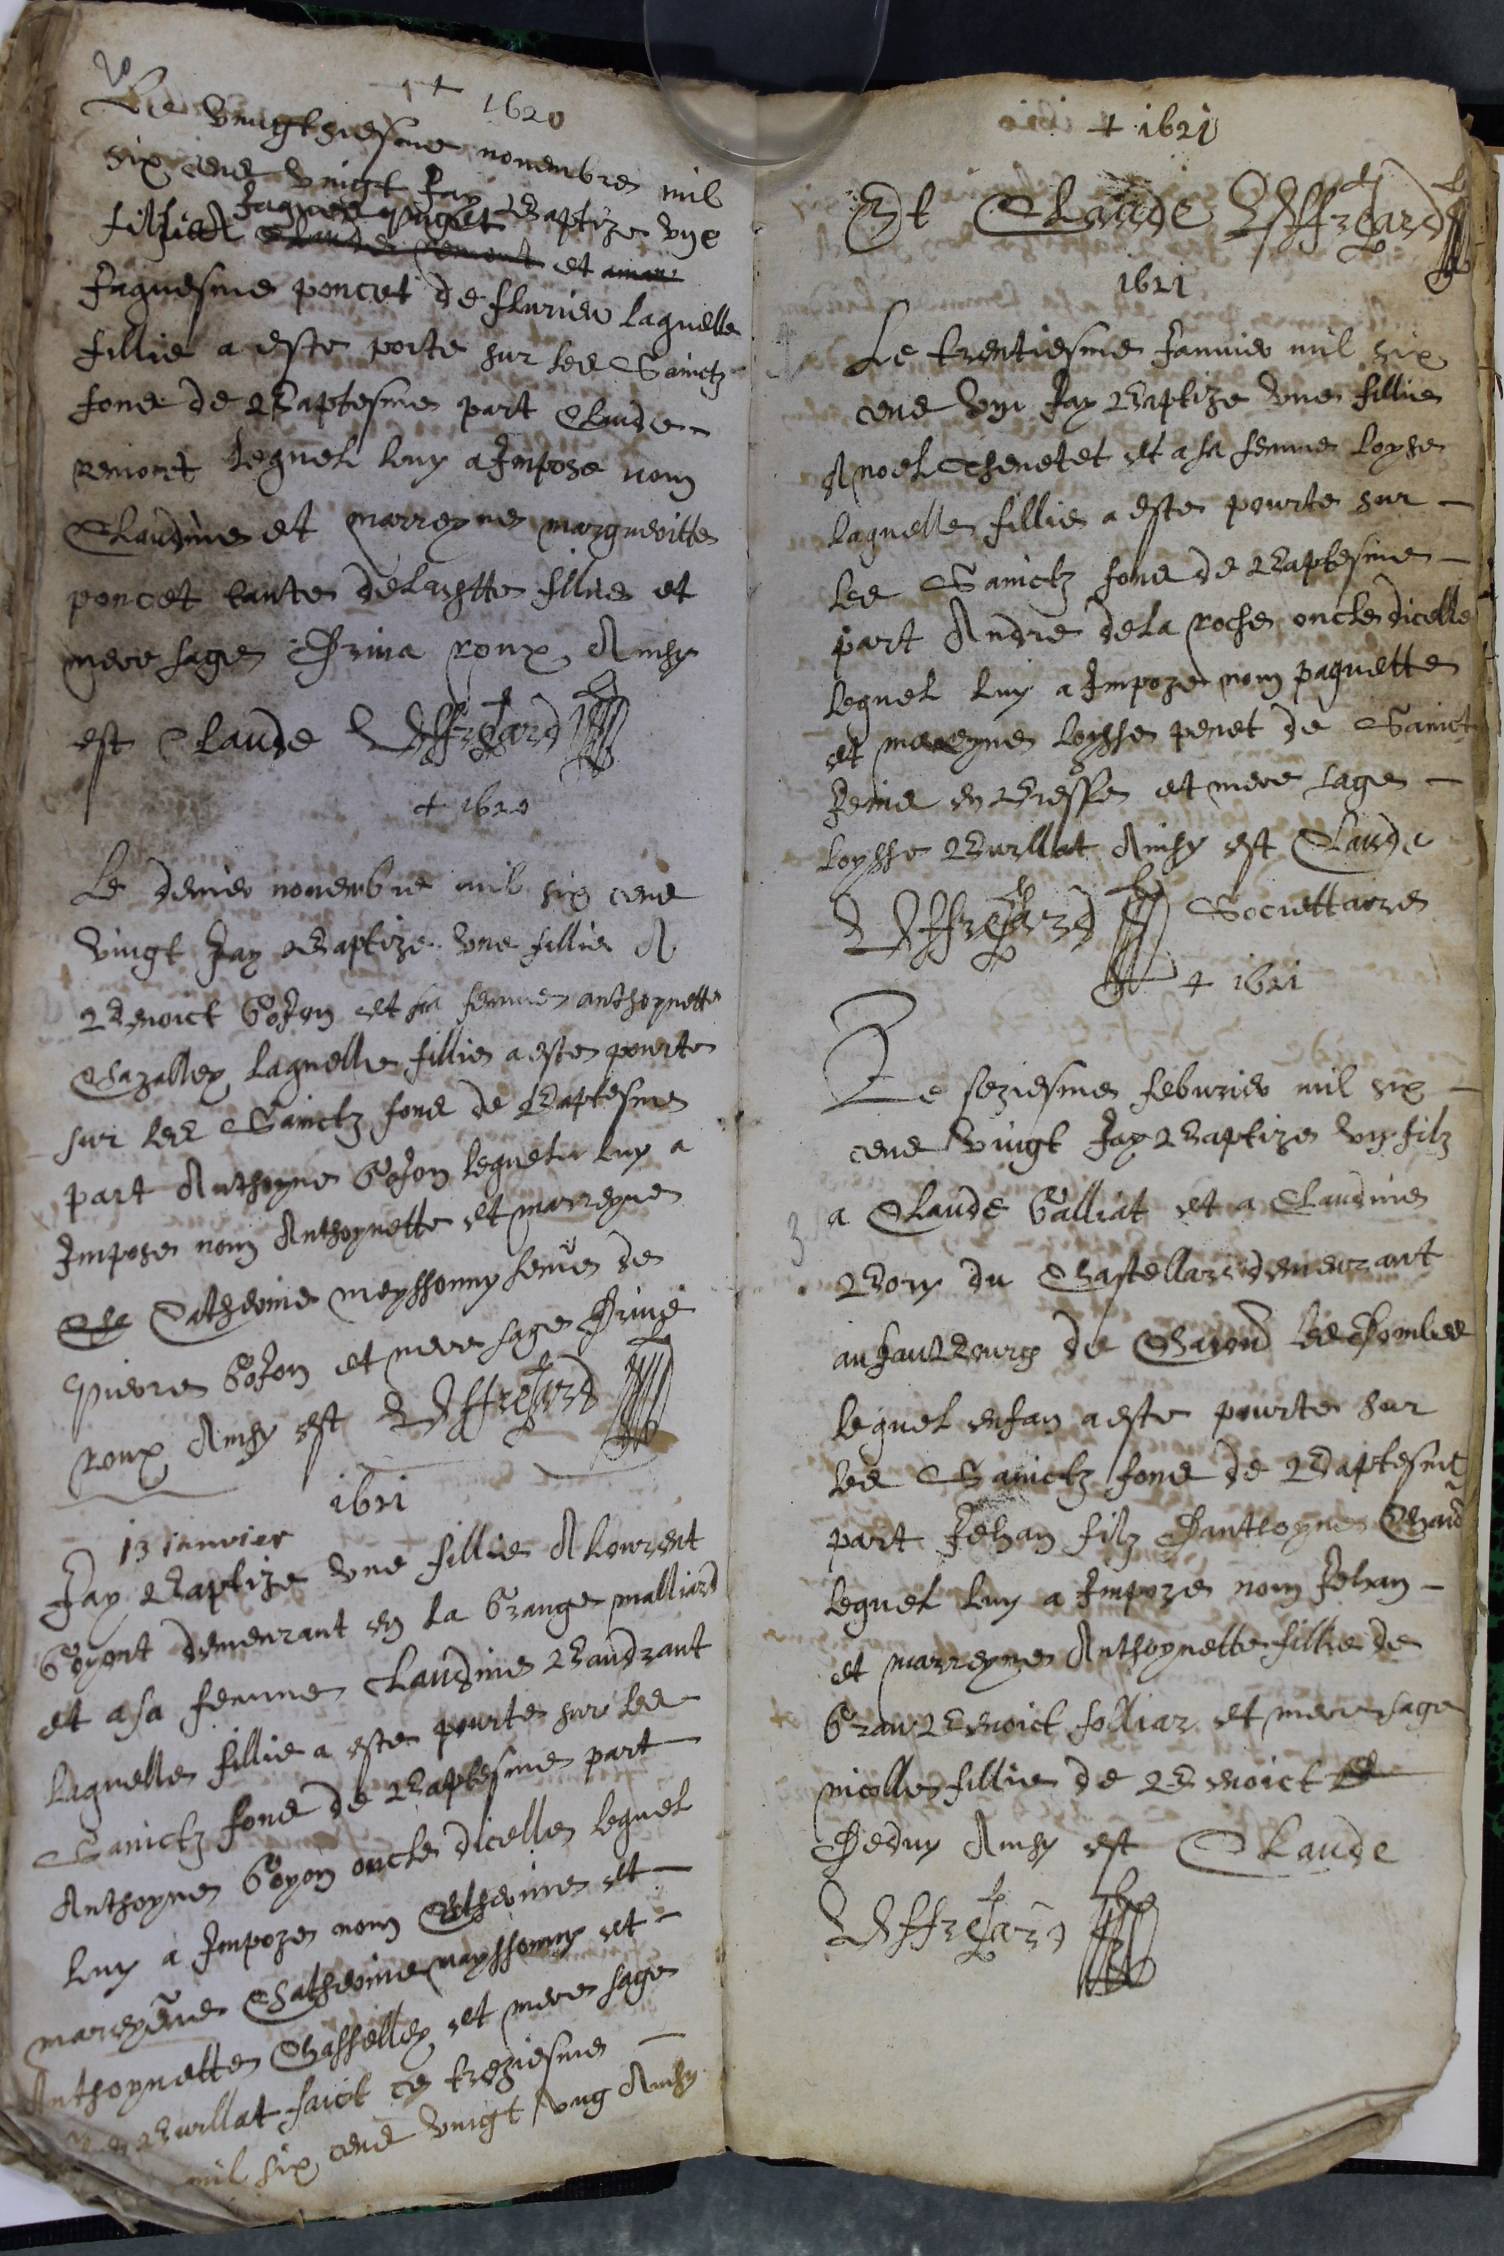 20
+ 1620
Le vingtiesme novembre mil
six cens vingt Jay Baptize vne
Jaques puget
fillie A Claude remont et
Jaquesme poncet de flurieu laquelle
fillie a este porte sur les Sainctz
fons de Baptesme part Claude
remont lequel luy a Impose nom
Claudine et marreyne margueritte
poncet tante de la fillie et
mere sage roux Ainsy
est Claude Effregard
+ 1620
Le denier novembre mil six cens
vingt Jay Baptize vne fillie A
Benoict Gojon et sa femme anthoynette
Chazalley laquelle fillie a este pourte
sur les Sainctz fons de Baptesme
part Anthoyne Gojon lequel luy a
Impose nom Anthoynette et marreyne
Catherine meyssonny feme de
Pierre Gojon et mere sage
roux Ainsy est Effregard
1621
13 janvier
Jay Baptize vne fillie A Lourent
Goyont demeurant en la Grange malliard
et a sa femme Claudine Baudrant
laquelle fillie a este pourte sur les
Sainctz fons de Baptesme part
Anthoyne Goyon oncle dicelle lequel
luy a Impoze nom Catherine et
mareyene Catherine mayssonny et
Anthoynette Chasselley et mere sage
Burllat faict ce treziesme
mil six cens vingt vng Ainsy
+ 1621
Et Claude Effregard
1621
Le trentiesme Janvier mil six
cens vin Jay Baptize vne fillie
A noel Thenetet et a sa femme loyse
laquelle fillie a este pourte sur
les Sainctz fons de Baptesme
part Andre de la roche oncle dicelle
lequel luy a Impoze nom paquette
et mareyne loysse penet de Sainct
Jenis en Bresse et mere sage
loysse Burllat Ainsy est Claude
Effregard Societtaire
+ 1621
Le seziesme feburier mil six
cens vingt Jay Baptize vn filz
a Claude Galliat et a Claudine
Bory du Chastellard demeurant
au fauxbourg de les Dombes
lequel enfan a este pourte sur
les Sainctz fons de Baptesme
part Jehan filz Danthoyne
lequel luy a Impoze nom Jehan
et marreyne Anthoynette fillie de
Benoict folliar et mere sage
nicolle fillie de Benoict
Deduy Ainsy est Claude
Effregard